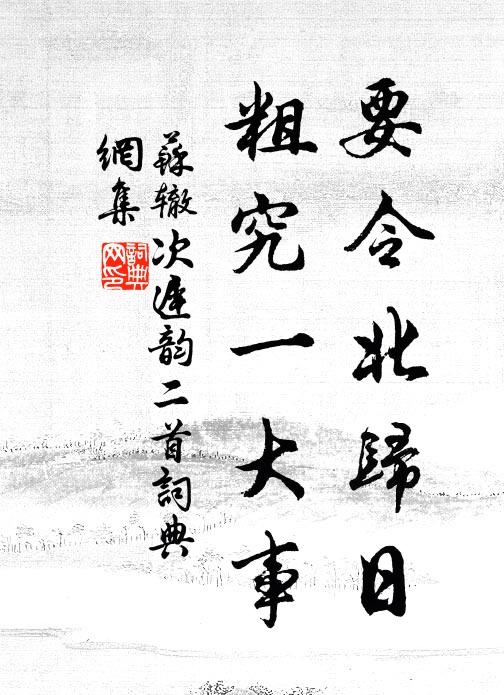 要令北歸日
粗究一大事
蘇轍次遲韵二首詞典
網集
詞典
网印